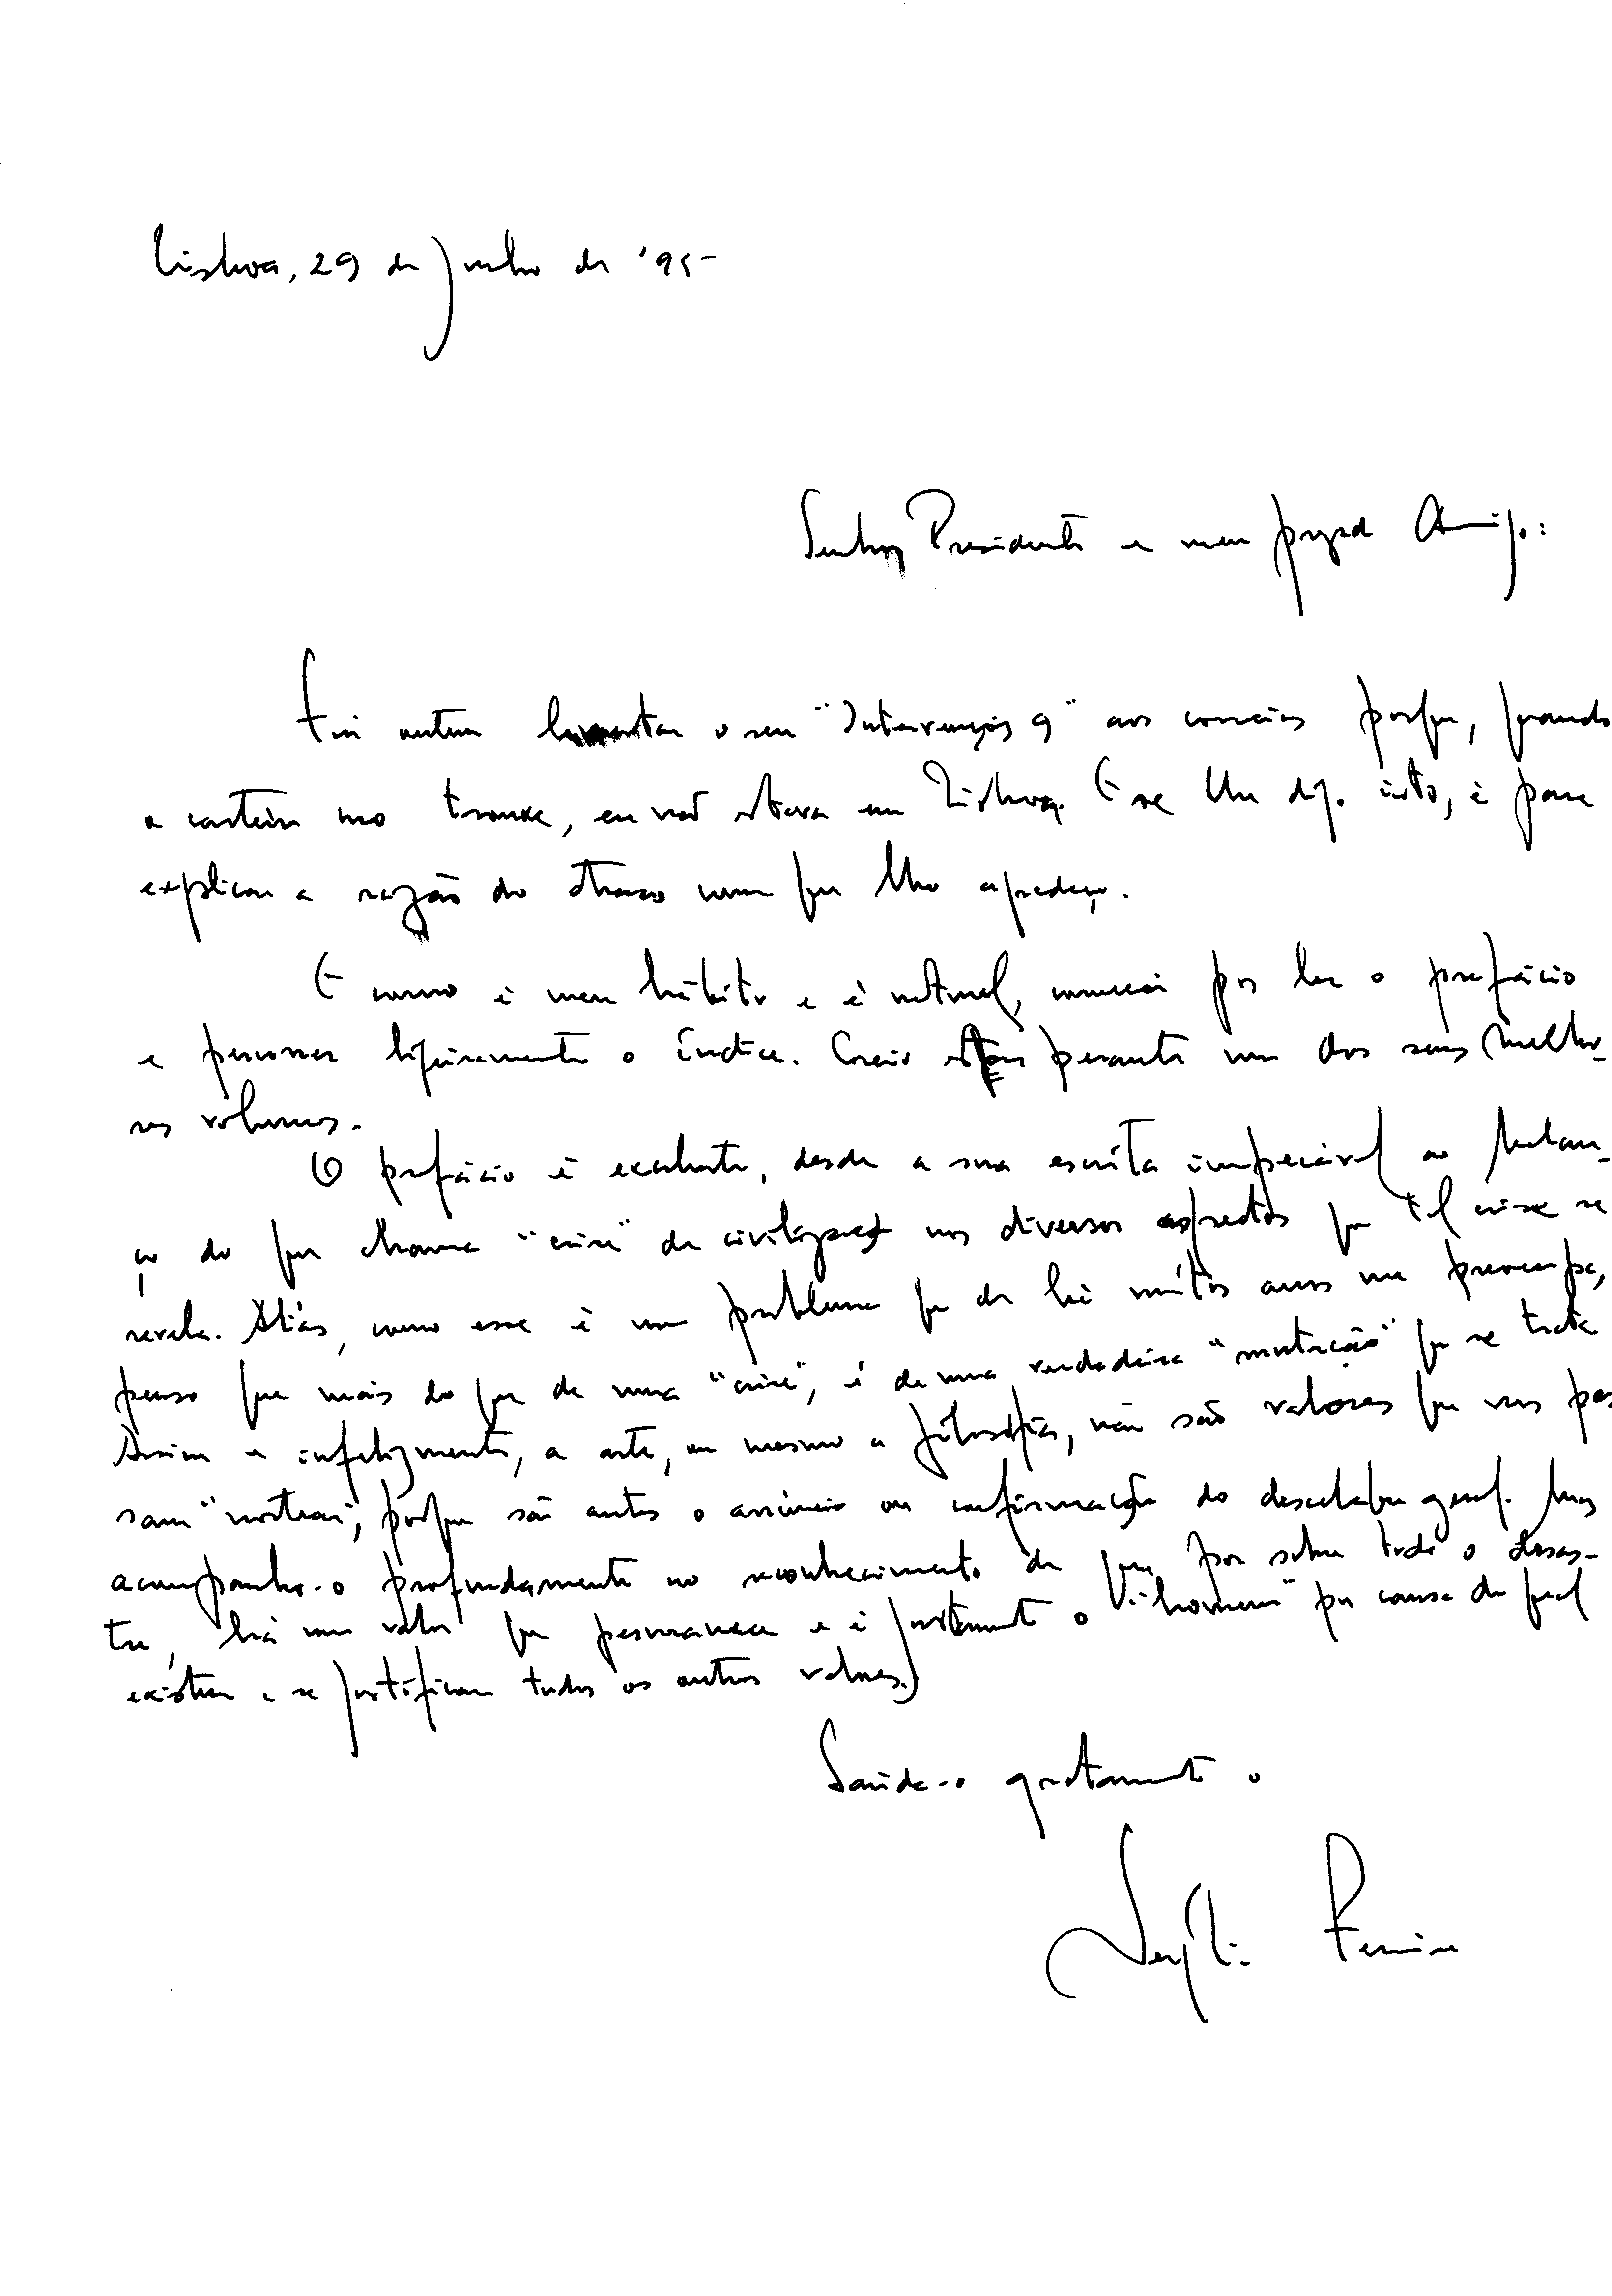 Lisboa, 29 de Junho de '95
Senhor Presidente e meu prezado Amigo:
Fui ontem levantar o seu "Intervenções 9" aos correios porque, quando
o carteiro mo trouxe, eu não estava em Lisboa. E se lhe digo isto, é para
explicar a razão do atraso com que lho agradeço.
E como é meu hábito e é natural, comecei por ler o prefácio
e percorrer ligeiramente o índice. Creio estar perante um dos seus melho-
res volumes.
O prefácio é excelente, desde a sua escrita impecável ao balan-
ço do que chama "crise" da civilização nos diversos aspectos que tal crise se
revela. Aliás, como esse é um problema que de há muitos anos me preocupa,
penso que mais do que de uma "crise", é de uma verdadeira "mutação" que se trata
Assim e infelizmente, a arte, ou mesmo a filosofia, não são valores que nos pos
sam "nortear", porque são antes o anúncio ou confirmação do descalabro geral. Mas
acompanho-o profundamente no reconhecimento de que por sobre todo o desas-
tre, há um valor que permanece e é justamente o "homem" por causa do qual
existem e se justificam todos os outros valores.
Saúda-o gratamente o
Vergílio Ferreira